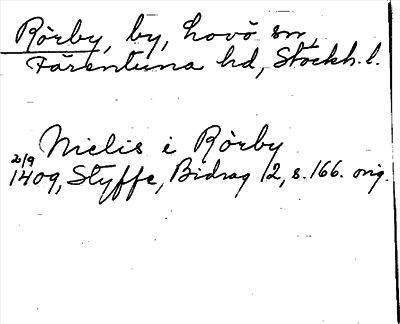 Rörby, by, Lovö sn,
Färentuna hd, Stockh. l.
Nielis i Rörby
20/9
1409, Styffe, Bidrag 2, s. 166. orig.